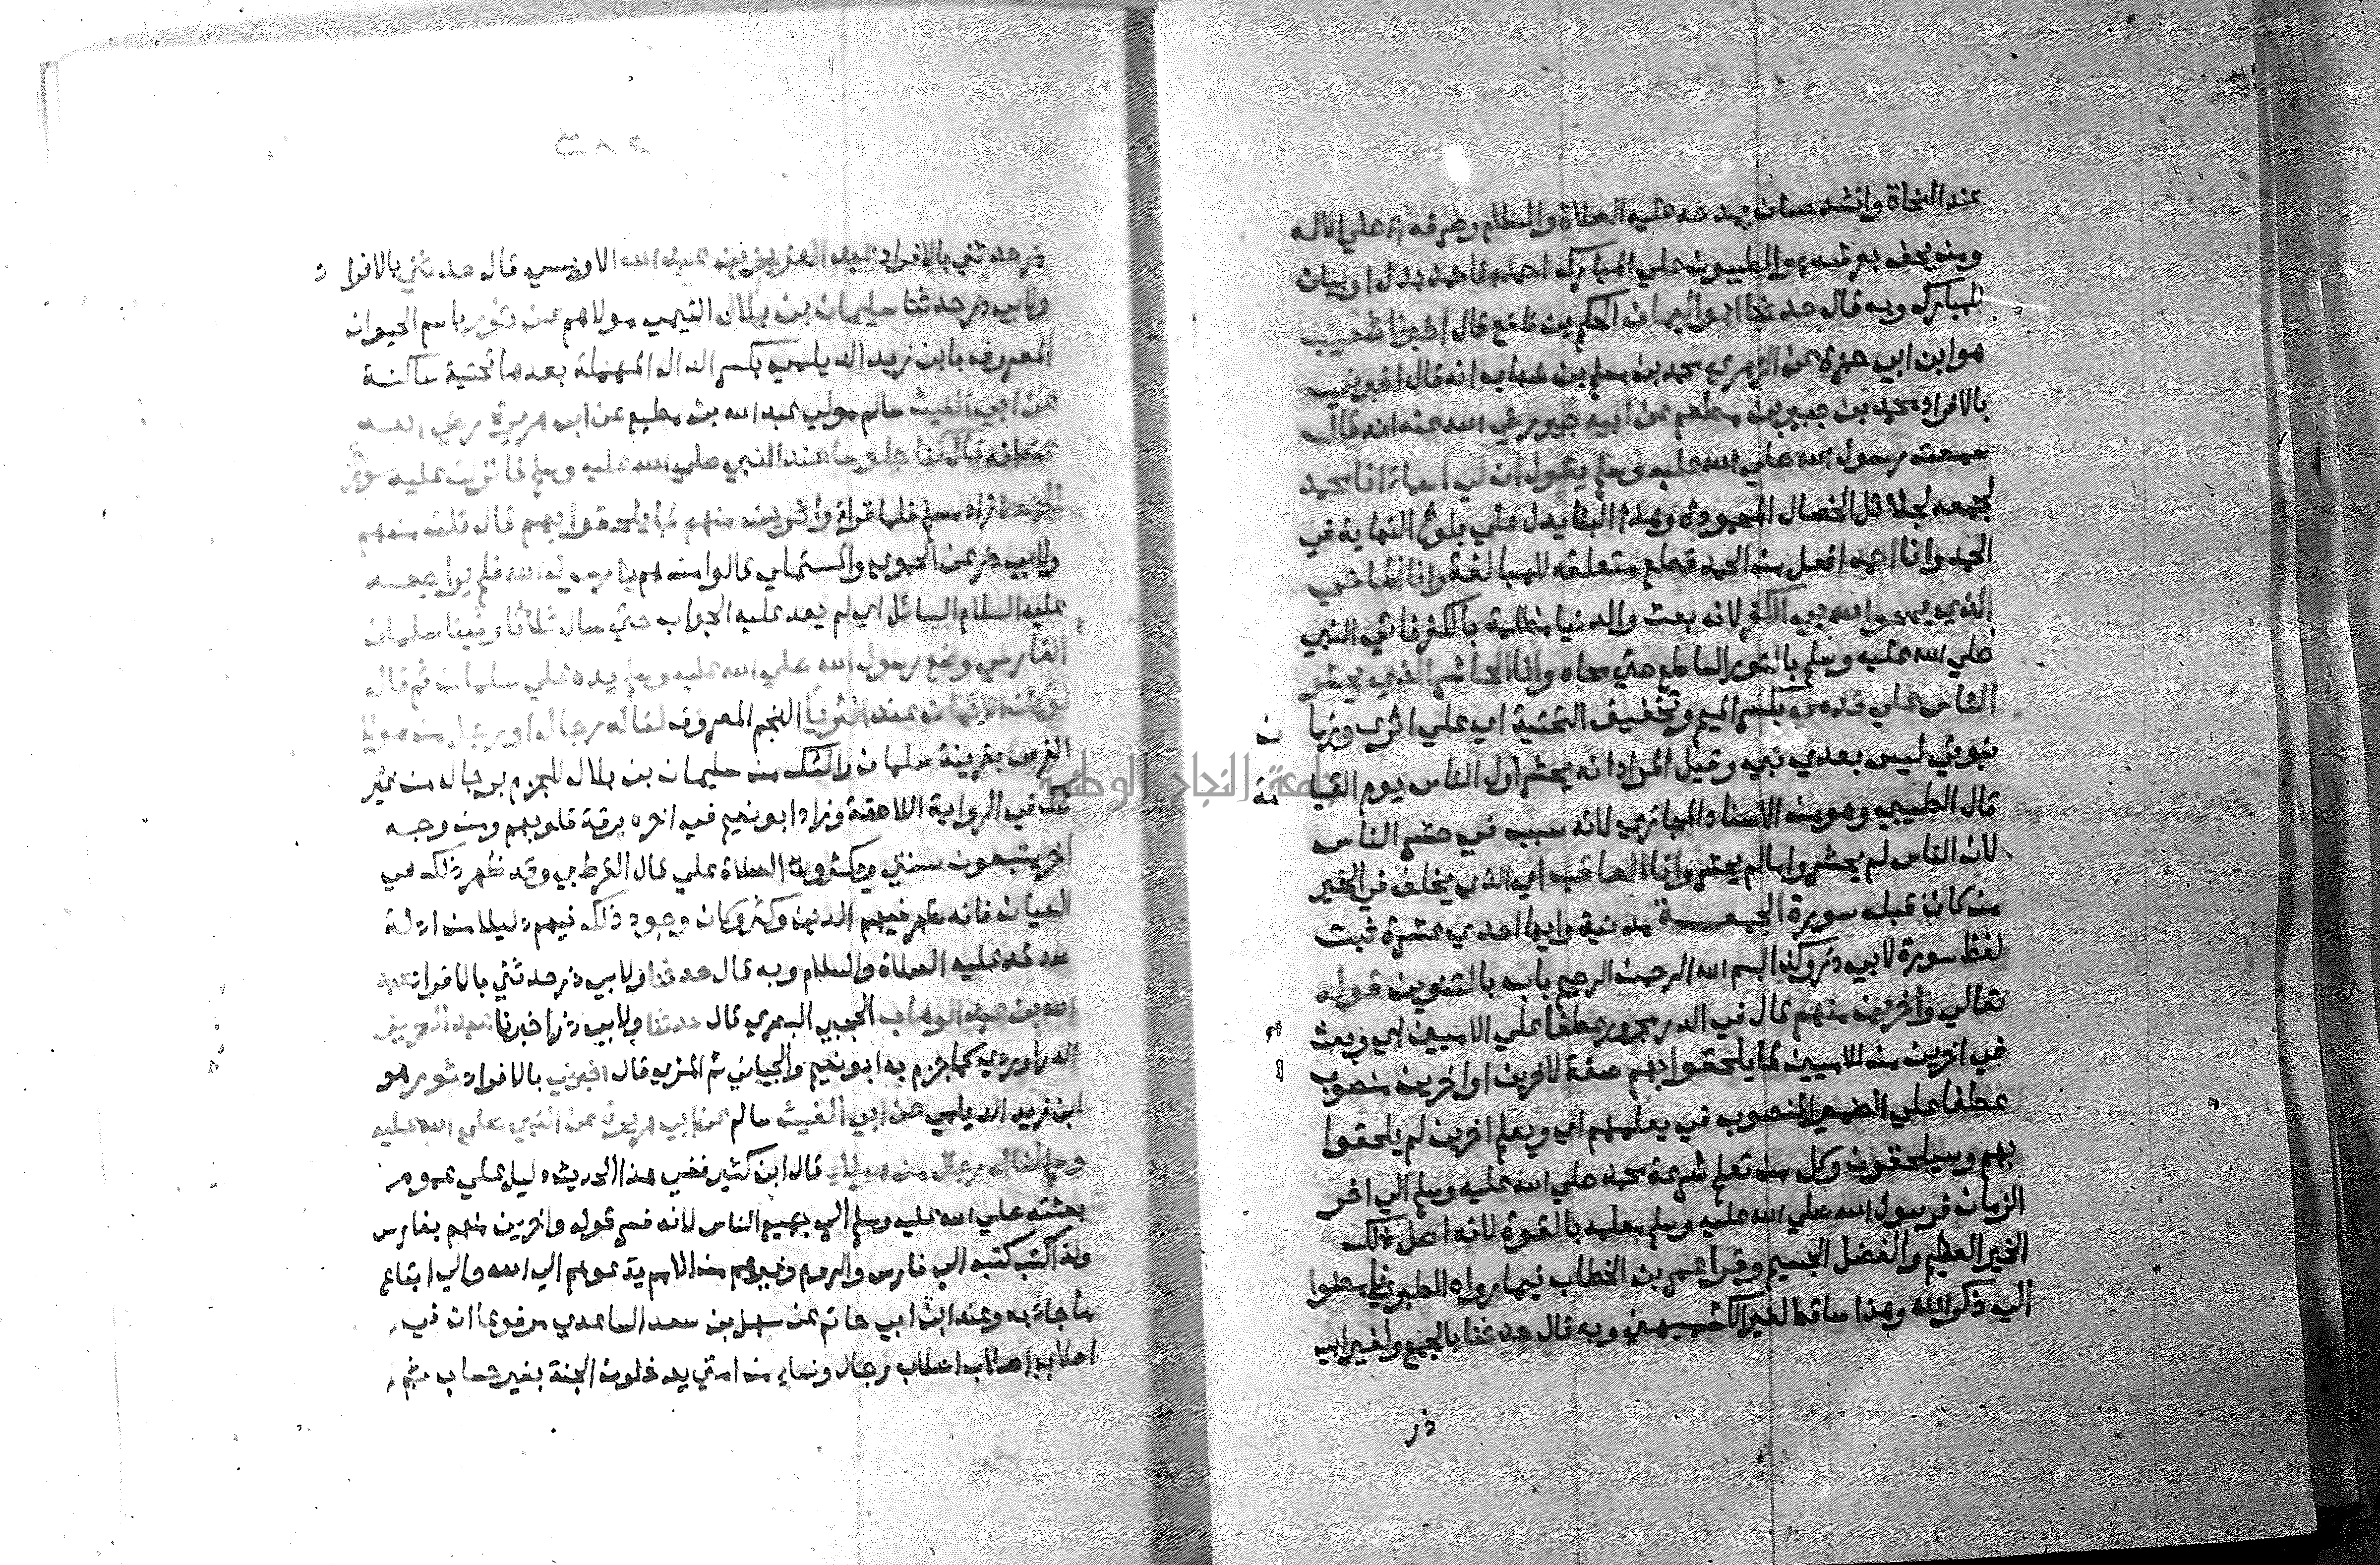 عند النحاة وانشد حسان يمدحه عليه الصلاة والسلام وصرفه صلي الاله
ومن يحف بعرشه والطيبون علي المبارك احمد فاحمد بدل او بيان
للمبارك وبه قال حدثنا ابو اليمان الحكم بن نافع قال اخبرنا شعيب
هو ابن ابي حمزة عن الزهري محمد بن مسلم بن شهاب انه قال اخبرني
بالافراد محمد بن جبير بن مطعم عن ابيه جبير رضي الله عنه انه قال
سمعت رسول الله صلي الله عليه وسلم يقول ان لي اسماء انا محمد
لجمعه لجلائل الخصال المحمودة وهذا البنا يدل علي بلوغ النهاية في
الحمد وانا احمد افعل من الحمد قطع متعلقه للمبالغة وانا الماحي
الذي يمحوا الله بي الكفر لانه بعث والدنيا مظلمة بالكفر فاتي النبي
صلي الله عليه وسلم بالنور الساطع حتي محاه وانا الحاشر الذي يحشر
الناس علي قدمي بكسر الميم وتخفيف التحتية اي علي اثري وزمان
نبوتي ليس بعدي نبي وقيل المراد انه يحشر اول الناس يوم القيامة
قال الطيبي وهو من الاسناد المجازي لانه سبب في حشر الناس
لان الناس لم يحشروا ما لم يحشر وانا العاقب اي الذي يخلف في الخير
من كان قبله سورة الجمعة مدنية وايها احدي عشرة ثبت
لفظ سورة لابي ذر وكذا بسم الله الرحمن الرحيم باب بالتنوين قوله
تعالي واخرين منهم قال في الدر مجرور عطفا علي الاميين اي وبعث
في اخرين من الاميين لما يلحقوا بهم صفة لاخرين او اخرين منصوب
عطفا علي الضمير المنصوب في يعلمهم اي ويعلم اخرين لم يلحقوا
بهم وسيلحقون وكل من تعلم شريعة محمد صلي الله عليه وسلم الي اخر
الزمان فرسول الله صلي الله عليه وسلم معلمه بالقوة لانه اصل ذلك
الخير العظيم والفضل الجسيم وقرا عمر بن الخطاب فيما رواه الطبري فامضوا
الي ذكر الله وهذا ساقط لغير الكشميهني وبه قال حدثنا بالجمع ولغير ابي
ذر
ذر حدثني بالافراد عبد العزيز بن عبد الله الاويسي قال حدثني بالافراد
ولابي ذر حدثنا سليمان بن بلال التيمي مولاهم عن ثور باسم الحيوان
المعروف بابن زيد الديلمي بكسر الدال المهملة بعدها تحتية ساكنة
عن ابي الغيث سالم مولي عبد الله بن مطيع عن ابي هريرة رضي الله
عنه انه قال كنا جلوسا عند النبي صلي الله عليه وسلم فانزلت عليه سورة
الجمعة زاد مسلم فلما قراء واخرين منهم لما يلحقوا بهم قال قلت من هم
ولابي ذر عن الحموي والمستملي قالوا من هم يا رسول الله فلم يراجعه
عليه السلام السائل اي لم يعد عليه الجواب حتي سال ثلاثا وفينا سلمان
الفارسي وضع رسول الله صلي الله عليه وسلم يده علي سلمان ثم قال
لو كان الايمان عند الثريا النجم المعروف لناله رجال او رجل من هولاء
الفرس بقرينة سلمان والشك من سليمان بن بلال للجزم برجال من غير
شك في الرواية اللاحقة وزاد ابو نعيم في اخره برقة قلوبهم ومن وجه
اخر يتبعون سنتي ويكثرون الصلاة علي قال القرطبي وقد ظهر ذلك في
العيان فانه ظهر فيهم الدين وكثر وكان وجود ذلك فيهم دليلا من ادلة
صدقه عليه الصلاة والسلام وبه قال حدثنا ولابي ذر حدثني بالافراد عبد
الله بن عبد الوهاب الحجبي البصري قال حدثنا ولابي ذر اخبرنا عبد العزيز
الدراوردي كما جزم به ابو نعيم والجياني ثم المزي قال اخبرني بالافراد ثور هو
ابن زيد الديلمي عن ابي الغيث سالم عن ابي هريرة عن النبي صلي الله عليه
وسلم لناله رجال من هولاء قال ابن كثير ففي هذا الحديث دليل علي عموم
بعثته صلي الله عليه وسلم الي جميع الناس لانه فسر قوله واخرين منهم بفارس
ولذا كتب كتبه الي فارس والروم وغيرهم من الامم يدعوهم الي الله والي اتباع
ما جاء به وعند ابن ابي حاتم عن سهل بن سعد الساعدي مرفوعا ان في
اصلاب اصلاب اصلاب رجال ونساء من امتي يدخلون الجنة بغير حساب ثم
جامعة النجاح الوطنية